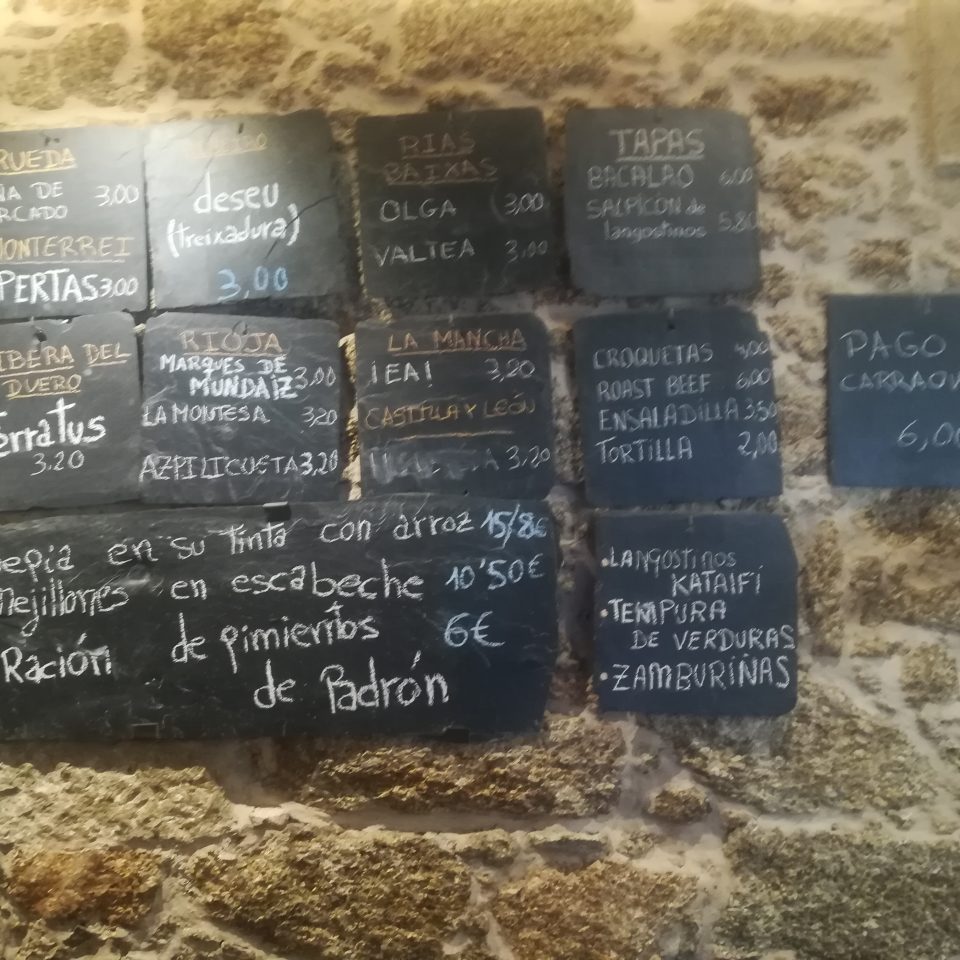 RUEDA
DE 3,00
MONTERREI
3,00
deseu
(treixadura)
3,00
RIAS
BAIXAS
OLGA 3,00
VALTEA 3,00
TAPAS
BACALAO 6,00
SALPICON de
langostinos 5,80
DEL
DUERO
3.20
RIOJA
MARQUES DE
MUNDAIZ 3,00
LA MONTESA 3,20
AZPILICUETA 3,20
LA MANCHA
¡EA! 3,20
CASTILLA Y LEÓN
3,20
CROQUETAS 4,00
ROAST BEEF 6,00
ENSALADILLA 3,50
TORTILLA 2,00
PAGO
6,00
en su tinta con arroz 15/8€
mejillones en escabeche 10'50€
Ración de pimientos 6€
de Padrón
•LANgOSTINOS
KATAIFI
•TEMPURA
DE VERDURAS
•ZAMBURIÑAS